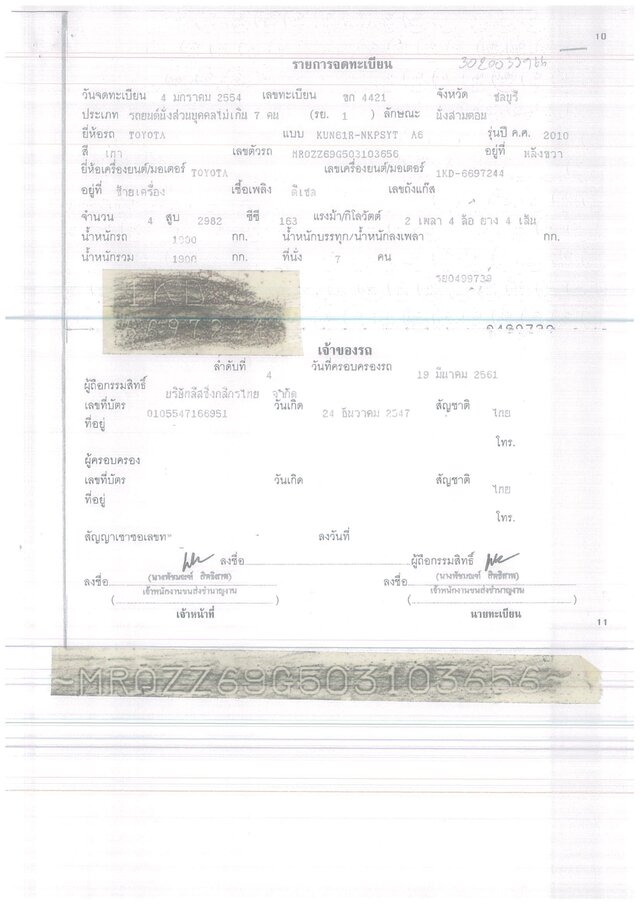 10
รายการจดทะเบียน
วันจดทะเบียน 4 มกราคม 2554 เลขทะเบียน ขก 4421 จังหวัด ชลบุรี
ประเภท รถยนต์นั่งส่วนบุคคลไม่เกิน 7 คน (รย. 1 ) ลักษณะ นั่งสามตอน
ยี่ห้อรถ TOYOTA แบบ KUN61R-NKPSYT A6 รุ่นปี ค.ศ. 2010
สี เทา เลขตัวรถ MR0ZZ69G503103656 อยู่ที่ หลังขวา
ยี่ห้อเครื่องยนต์/มอเตอร์ TOYOTA เลขเครื่องยนต์/มอเตอร์ 1KD-6697244
อยู่ที่ ซ้ายเครื่อง เชื้อเพลิง ดีเซล เลขถังแก๊ส
จำนวน 4 สูบ 2982 ซีซี 163 แรงม้า/กิโลวัตต์ 2 เพลา 4 ล้อ ยาง 4 เส้น
น้ำหนักรถ 1900 กก. น้ำหนักบรรทุก/น้ำหนักลงเพลา กก.
น้ำหนักรวม 1900 กก. ที่นั่ง 7 คน
เจ้าของรถ
ลำดับที่ 4 วันที่ครอบครองรถ 19 มีนาคม 2561
ผู้ถือกรรมสิทธิ์ บริษัทลีสซิ่งกสิกรไทย จำกัด
เลขที่บัตร 0105547166951 วันเกิด 24 ธันวาคม 2547 สัญชาติ ไทย
ที่อยู่
โทร.
ผู้ครอบครอง
เลขที่บัตร วันเกิด สัญชาติ ไทย
ที่อยู่
โทร.
สัญญาเช่าซื้อเลขที่ ลงวันที่
ลงชื่อ ผู้ถือกรรมสิทธิ์
ลงชื่อ ลงชื่อ
เจ้าพนักงานขนส่งชำนาญงาน เจ้าพนักงานขนส่งชำนาญงาน
( ) ( )
เจ้าหน้าที่ นายทะเบียน
11
MR0ZZ69G503103656